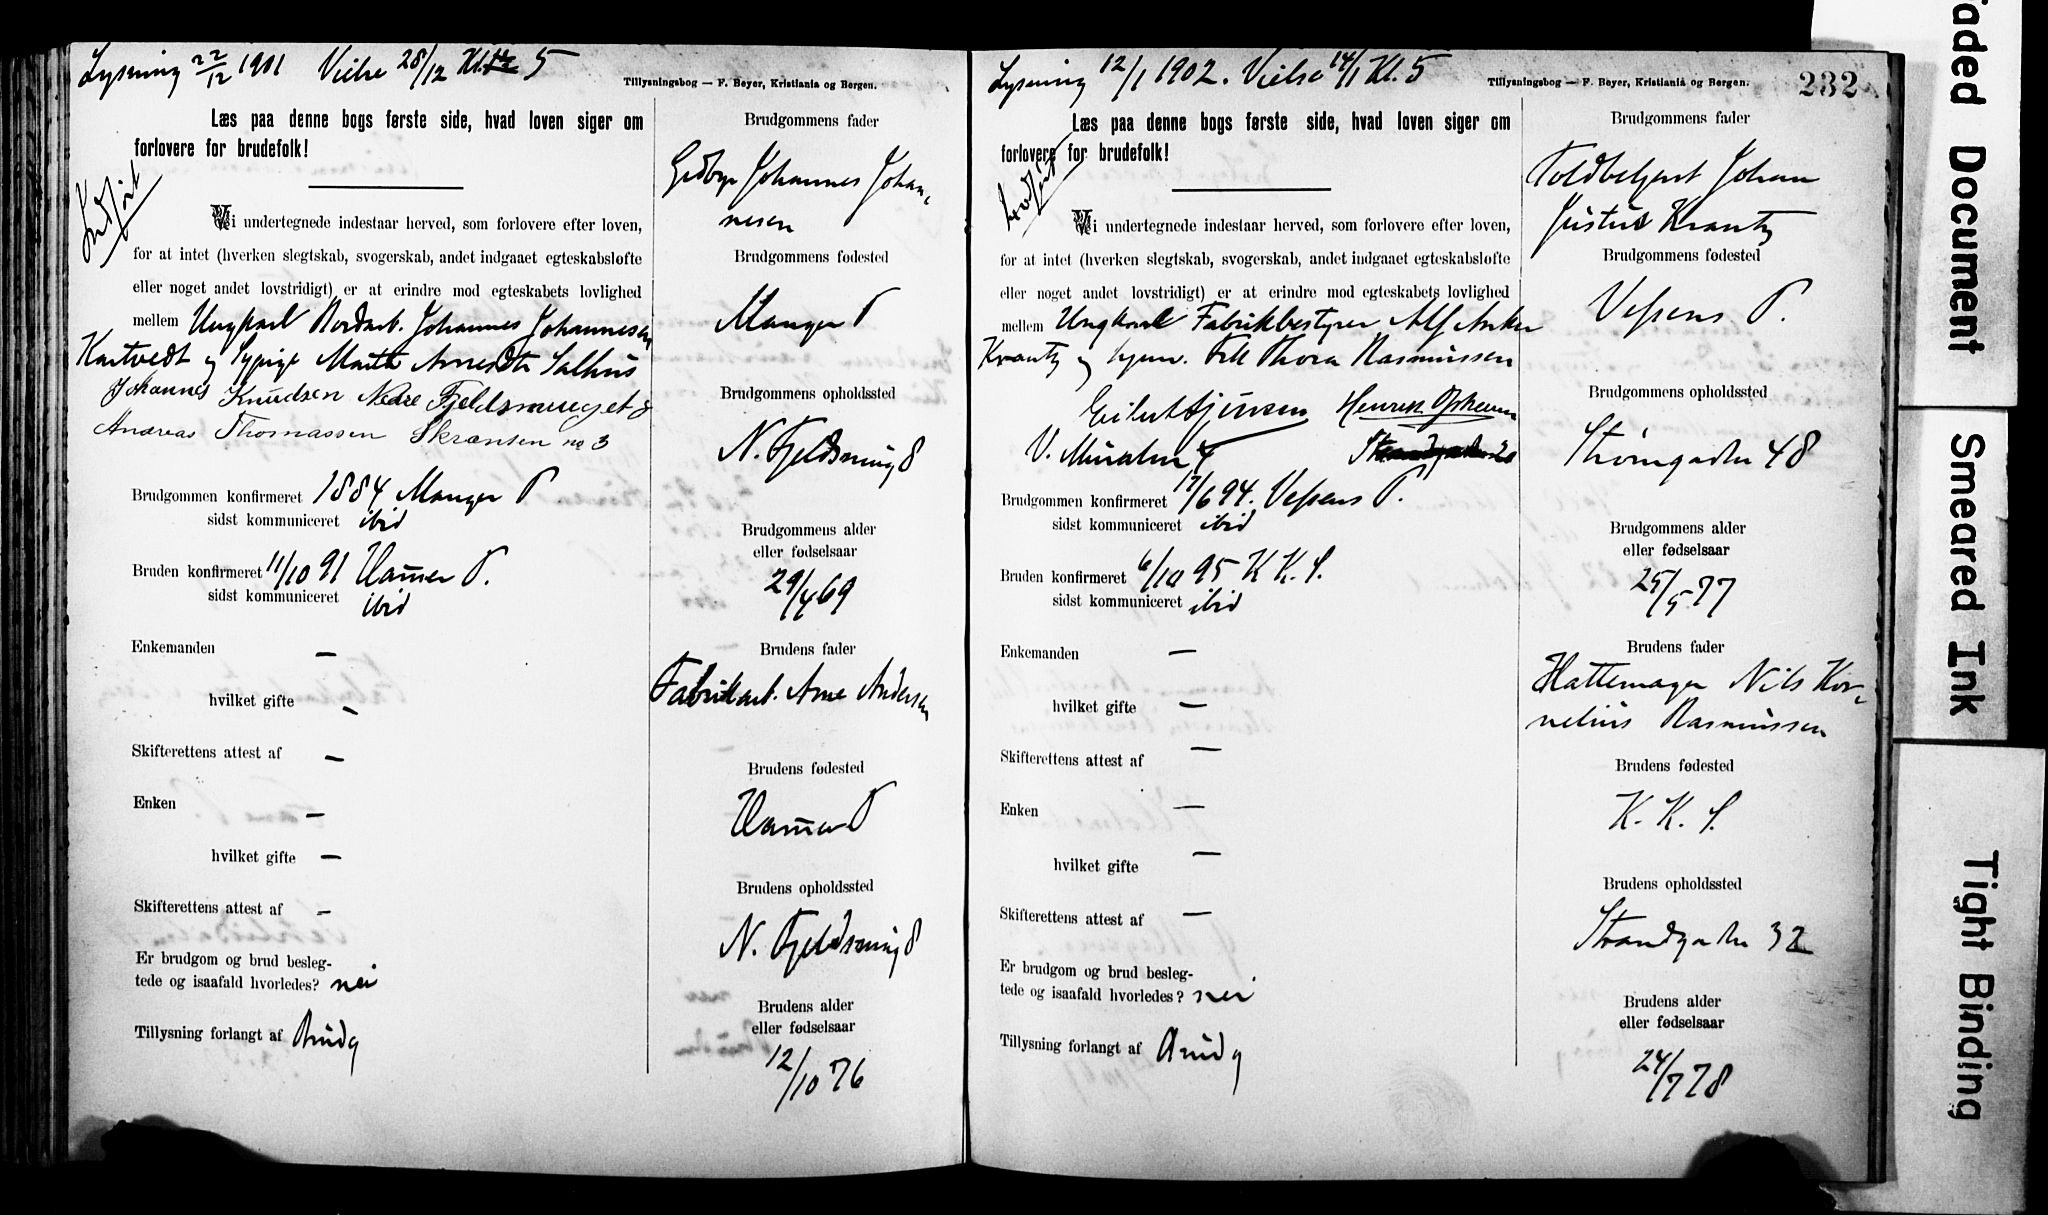 Lysning 22/12 1901 Vielse 28/12 Kl. 5
Tillysningsbog — F. Beyer, Kristiania og Bergen.
Læs paa denne bogs første side, hvad loven siger om
forlovere for brudefolk!
Indført
Vi undertegnede indestaar herved, som forlovere efter loven,
for at intet (hverken slegtskab, svogerskab, andet indgaaet egteskabsløfte
eller noget andet lovstridigt) er at erindre mod egteskabets lovlighed
mellem Ungkarl Nordarb. Johannes Johannesen
Kartvedt og Sypige Marthe Arnesdtr Salhus
Johannes Knudsen Nedre Fjeldsmuget 8
Andreas Thomassen Skrænten no 3
Brudgommen konfirmeret 1884 Manger P
sidst kommuniceret ibid
Bruden konfirmeret 11/10 91 Hamer P.
sidst kommuniceret ibid
Enkemanden —
hvilket gifte —
Skifterettens attest af —
Enken —
hvilket gifte —
Skifterettens attest af —
Er brudgom og brud besleg-
tede og isaafald hvorledes? nei
Tillysning forlangt af Brudg
Brudgommens fader
Johannes Johan-
nesen
Brudgommens fødested
Manger P
Brudgommens opholdssted
N. Fjeldsmug 8
Brudgommens alder
eller fødselsaar
29/4 69
Brudens fader
Fabrikarb. Arne Andersen
Brudens fødested
Hamer P
Brudens opholdssted
N. Fjeldsmug 8
Brudens alder
eller fødselsaar
12/10 76
Lysning 12/1 1902. Vielse 14/1 Kl. 5
Tillysningsbog — F. Beyer, Kristiania og Bergen.
232
Læs paa denne bogs første side, hvad loven siger om
forlovere for brudefolk!
Indført
Vi undertegnede indestaar herved, som forlovere efter loven,
for at intet (hverken slegtskab, svogerskab, andet indgaaet egteskabsløfte
eller noget andet lovstridigt) er at erindre mod egteskabets lovlighed
mellem Ungkarl Fabrikbestyrer Alf Anker
Krantz og Frk Thora Rasmussen
Henrik
V. Muralm 4
Brudgommen konfirmeret 17/6 94. Vefsens P.
sidst kommuniceret ibid
Bruden konfirmeret 6/10 95 K K. S.
sidst kommuniceret ibid
Enkemanden —
hvilket gifte —
Skifterettens attest af —
Enken —
hvilket gifte —
Skifterettens attest af —
Er brudgom og brud besleg-
tede og isaafald hvorledes? nei
Tillysning forlangt af Brudg
Brudgommens fader
Toldbetjent Johan
Justus Krantz
Brudgommens fødested
Vefsens P.
Brudgommens opholdssted
Strømgaden 48
Brudgommens alder
eller fødselsaar
25/5 77
Brudens fader
Hattemager Nils Kor-
nelius Rasmussen
Brudens fødested
K. K. S.
Brudens opholdssted
Strandgaden 32
Brudens alder
eller fødselsaar
24/7 78
Faded Document
Smeared Ink
Tight Binding